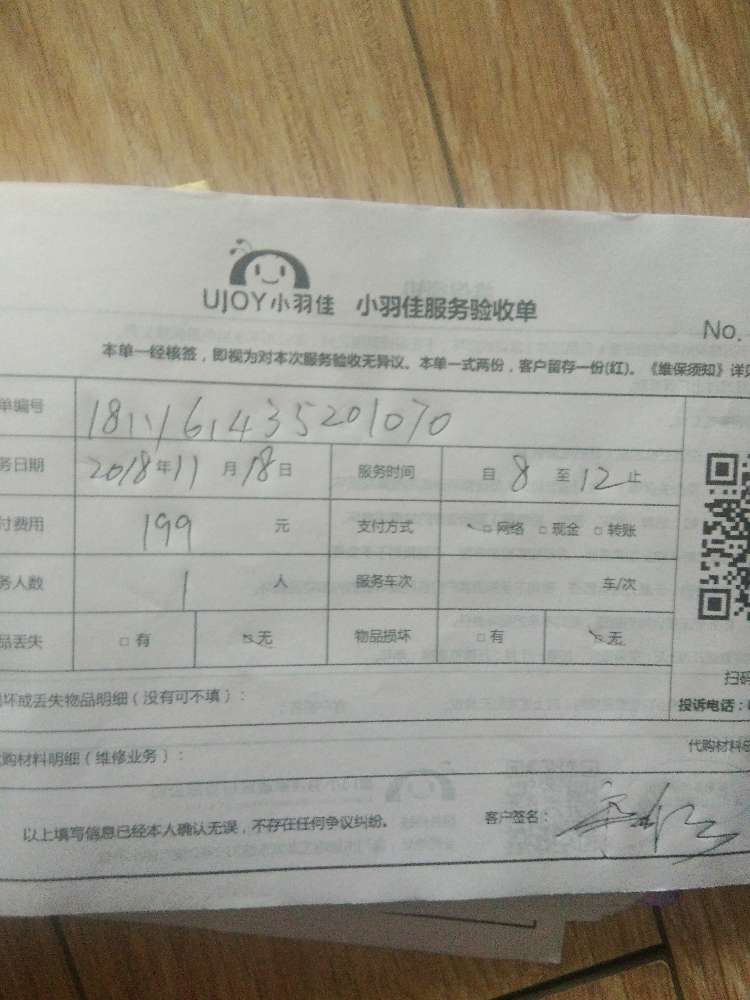 UJOY小羽佳 小羽佳服务验收单
No.
本单一经核签，即视为对本次服务验收无异议。本单一式两份，客户留存一份(红)。《维保须知》详见
单编号 181116143520107​0
务日期 2018年11月18日 服务时间 自8至12止
付费用 199 元 支付方式 □网络 □现金 □转账
务人数 1 人 服务车次 车/次
品丢失 □有 □无 物品损坏 □有 □无
扫码
损坏或丢失物品明细（没有可不填）：
投诉电话：
购材料明细（维修业务）：
代购材料
以上填写信息已经本人确认无误，不存在任何争议纠纷。 客户签名：